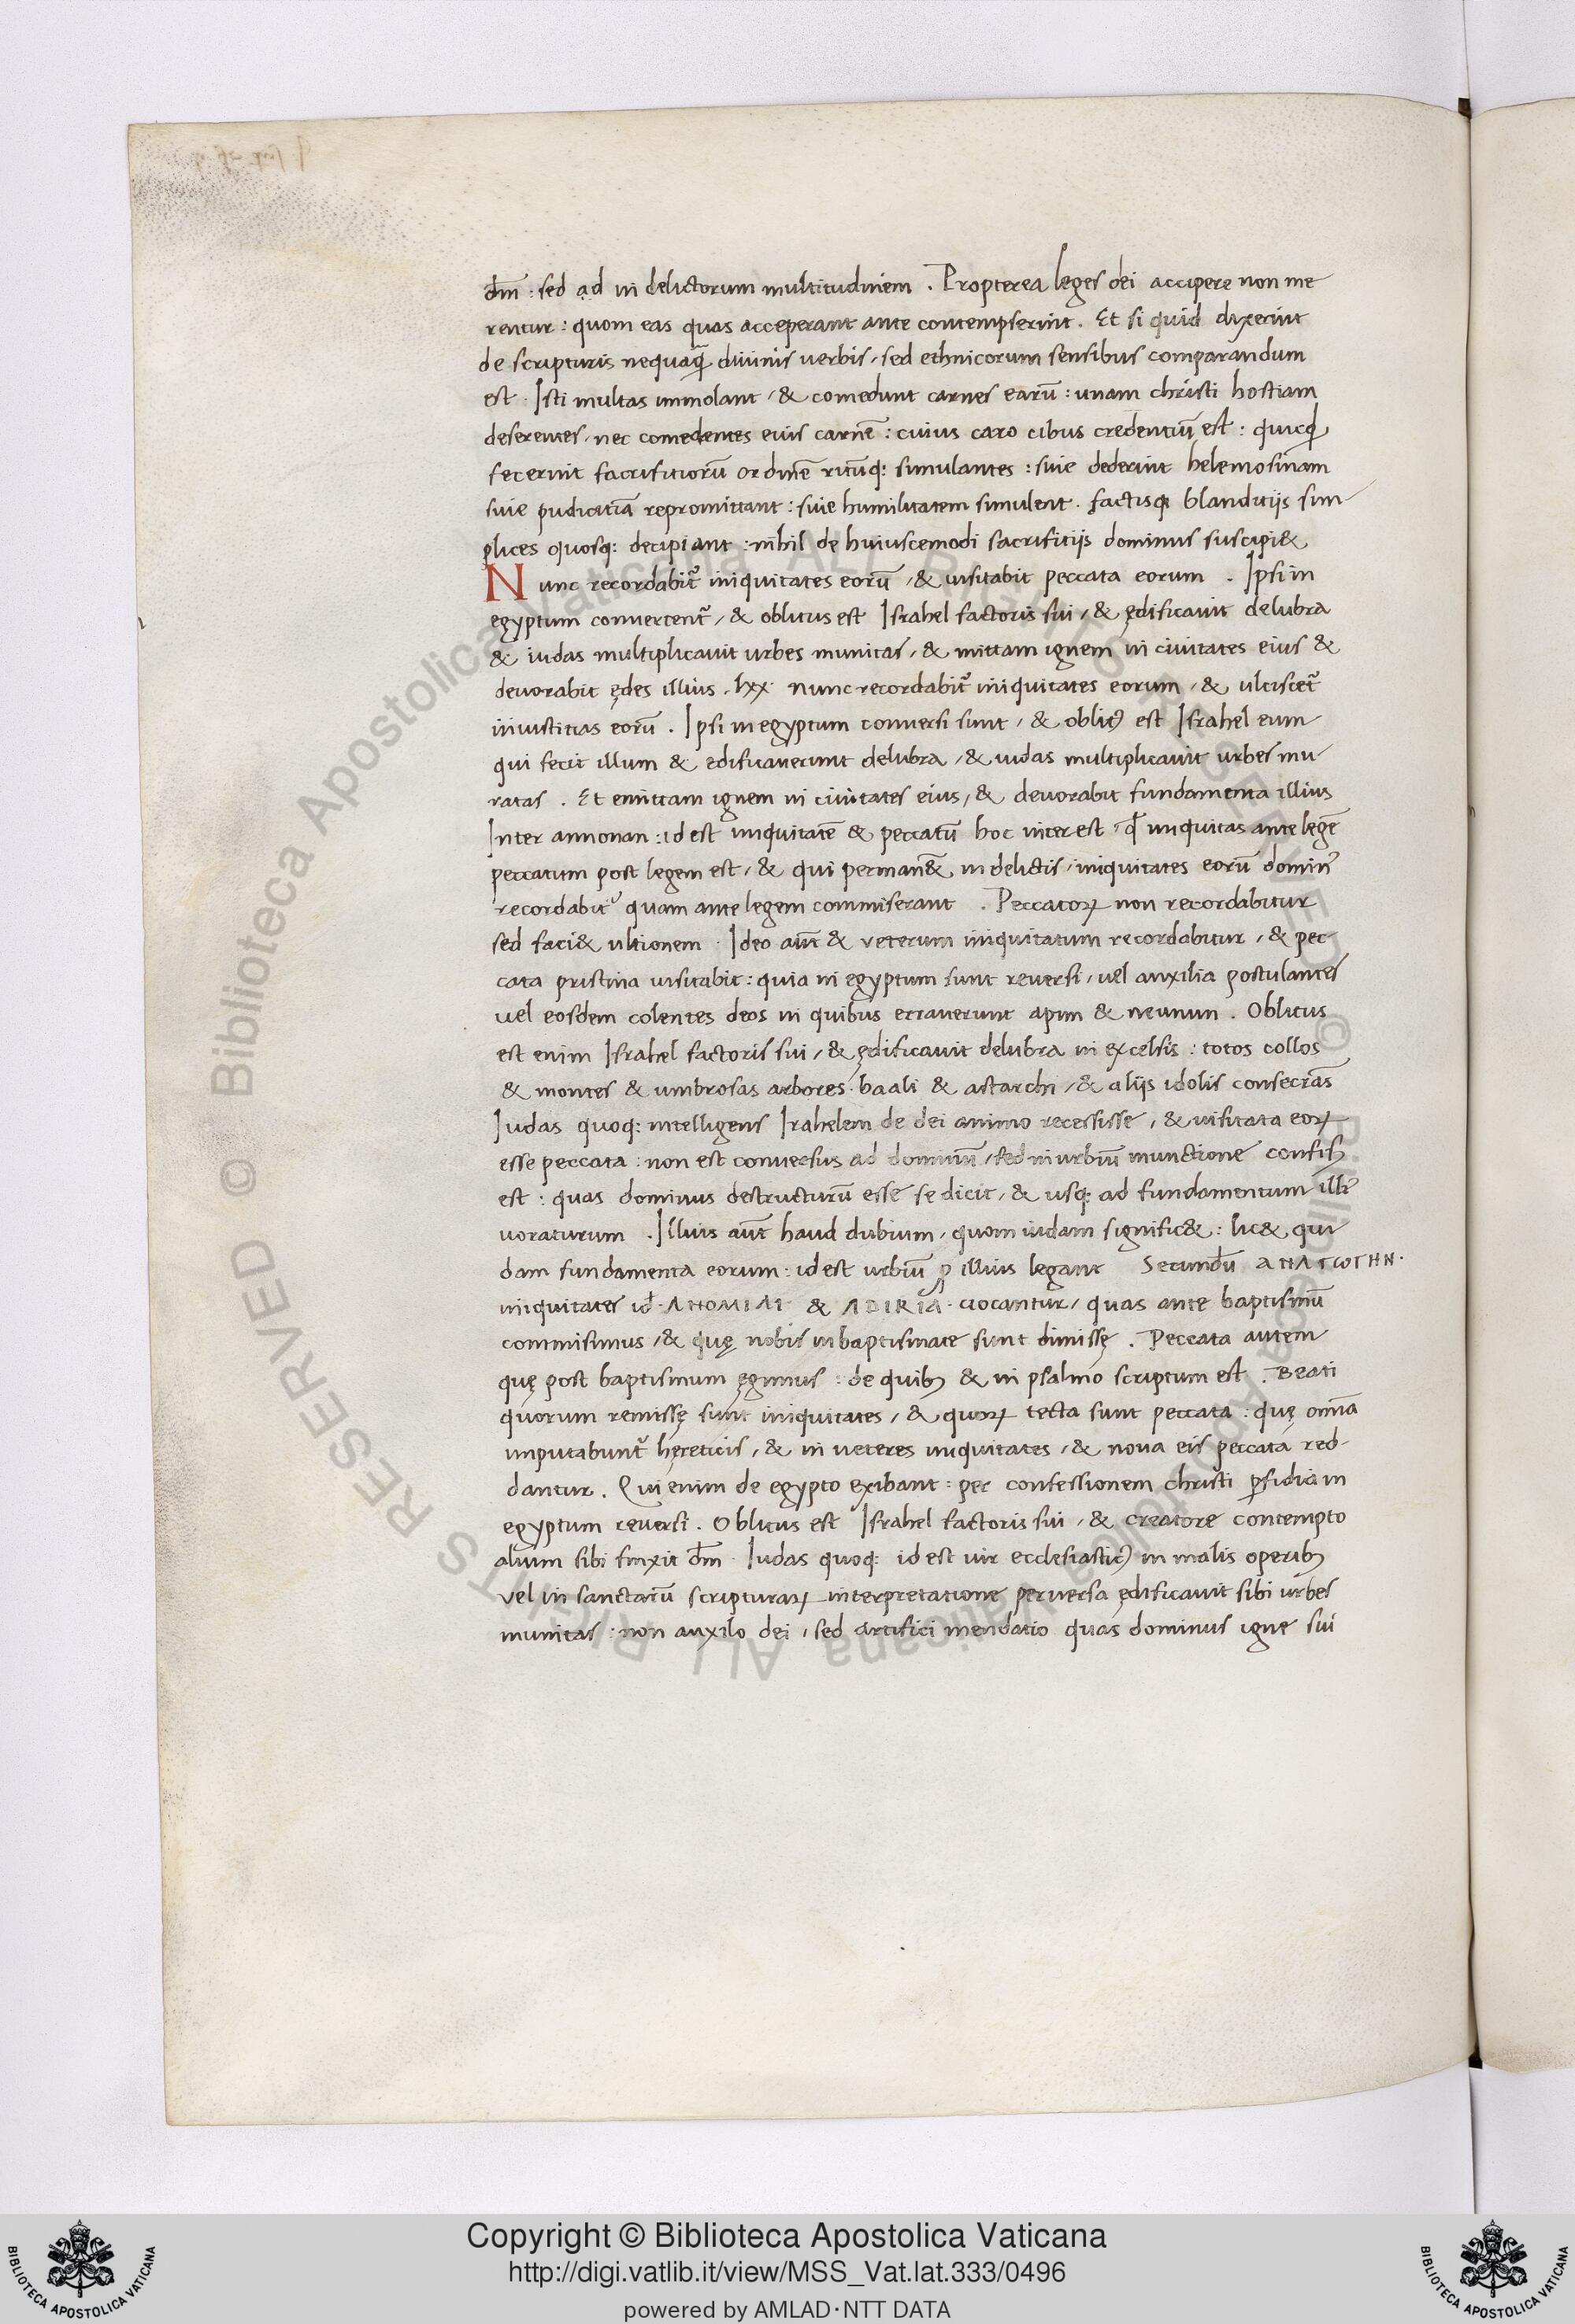 dm̅ : sed ad in delictorum multitudinem . Propterea leges dei accipere non me
rentur : quom eas quas acceperant ante contempserint . Et si quid dixerint
de scripturis nequaq̅ diuinis uerbis , sed ethnicorum sensibus comparandum
est . Isti multas immolant , & comedunt carnes earu̅ : unam christi hostiam
deserentes , nec comedentes eius carne̅ : cuius caro cibus credentiu̅ est : quicq̅
fecerint sacrifitioru̅ ordine̅ ritu̅q; simulantes : siue dederint helemosinam
siue pudicitia̅ repromittant : siue humilitatem simulent . factisq; blanditijs sim
plices quosq; decipiant : nihil de huiuscemodi sacrifitijs dominus suscipi&
Nunc recordabit᷑ iniquitates eoru̅ , & uisitabit peccata eorum . Ipsi in
egyptum conuertent᷑ , & oblitus est Israhel factoris sui , & ędificauit delubra
& iudas multiplicauit urbes munitas , & mittam ignem in ciuitates eius &
deuorabit ędes illius . lxx . nunc recordabit᷑ iniquitates eorum , & ulciscet᷑
iniustitias eoru̅ . Ipsi in egyptum conuersi sunt , & oblitꝰ est Israhel eum
qui fecit illum & edificauerunt delubra , & iudas multiplicauit urbes mu
ratas . Et emittam ignem in ciuitates eius , & deuorabit fundamenta illius
Inter annonan : id est iniquitate̅ & peccatu̅ hoc interest , q̅ iniquitas ante lege̅
peccatum post legem est , & qui perman& in delictis , iniquitates eoru̅ dominꝰ
recordabit᷑ quam ante legem commiserant . Peccatoꝝ non recordabitur
sed faci& ultionem . Ideo aut̅ & veterum iniquitatum recordabitur , & pec
cata pristina uisitabit : quia in egyptum sunt reuersi , uel auxilia postulantes
uel eosdem colentes deos in quibus errauerunt apim & neunun . Oblitus
est enim Israhel factoris sui , & ędificauit delubra in excelsis : totos collos
& montes & umbrosas arbores . baali & astarchi , & alijs idolis consecra̅s
Iudas quoq; intelligens Irahelem de dei animo recessisse , & uisitata eoꝝ
esse peccata : non est conuersus ad dominu̅ , sed in urbiu̅ munctione confisꝰ
est : quas dominus destructuru̅ esse se dicit , & usq; ad fundamentum illiꝰ
uoraturum . Illius aut̅ haud dubium , quom iudam signific& : lic& qui
dam fundamenta eorum : id est urbiu̅ p illius legant Secundu̅ ΑΝΑΓΩΓΗΝ .
iniquitates id̅ . ΑΝΟΜΙΑΙ & ΑDIRIA . uocantur , quas ante baptismu̅
commisimus , & quę nobis in baptismate sunt dimissę . Peccata autem
quę post baptismum ęgimus : de quibꝰ & in psalmo scriptum est . Beati
quorum remissę sunt iniquitates , & quoꝝ tecta sunt peccata : quę omia̅
imputabunt᷑ hęreticis , & in ueteres iniquitates , & noua eis peccata red-
dantur . Qui enim de egypto exibant : per confessionem christi ꝑfidia in
egyptum reuersi . Oblitus est Israhel factoris sui , & creatore contempto
alium sibi finxit dm̅ . Iudas quoq; id est uir ecclesiasticꝰ in malis operibꝰ
vel in sanctaru̅ scripturaꝝ interpretatione peruersa ędificauit sibi urbes
munitas : non auxilo dei , sed artifici mendatio quas dominus igne sui
Copyright © Biblioteca Apostolica Vaticana
http://digi.vatlib.it/view/MSS_Vat.lat.333/0496
powered by AMLAD·NTT DATA
BIBLIOTECA APOSTOLICA VATICANA
BIBLIOTECA APOSTOLICA VATICANA